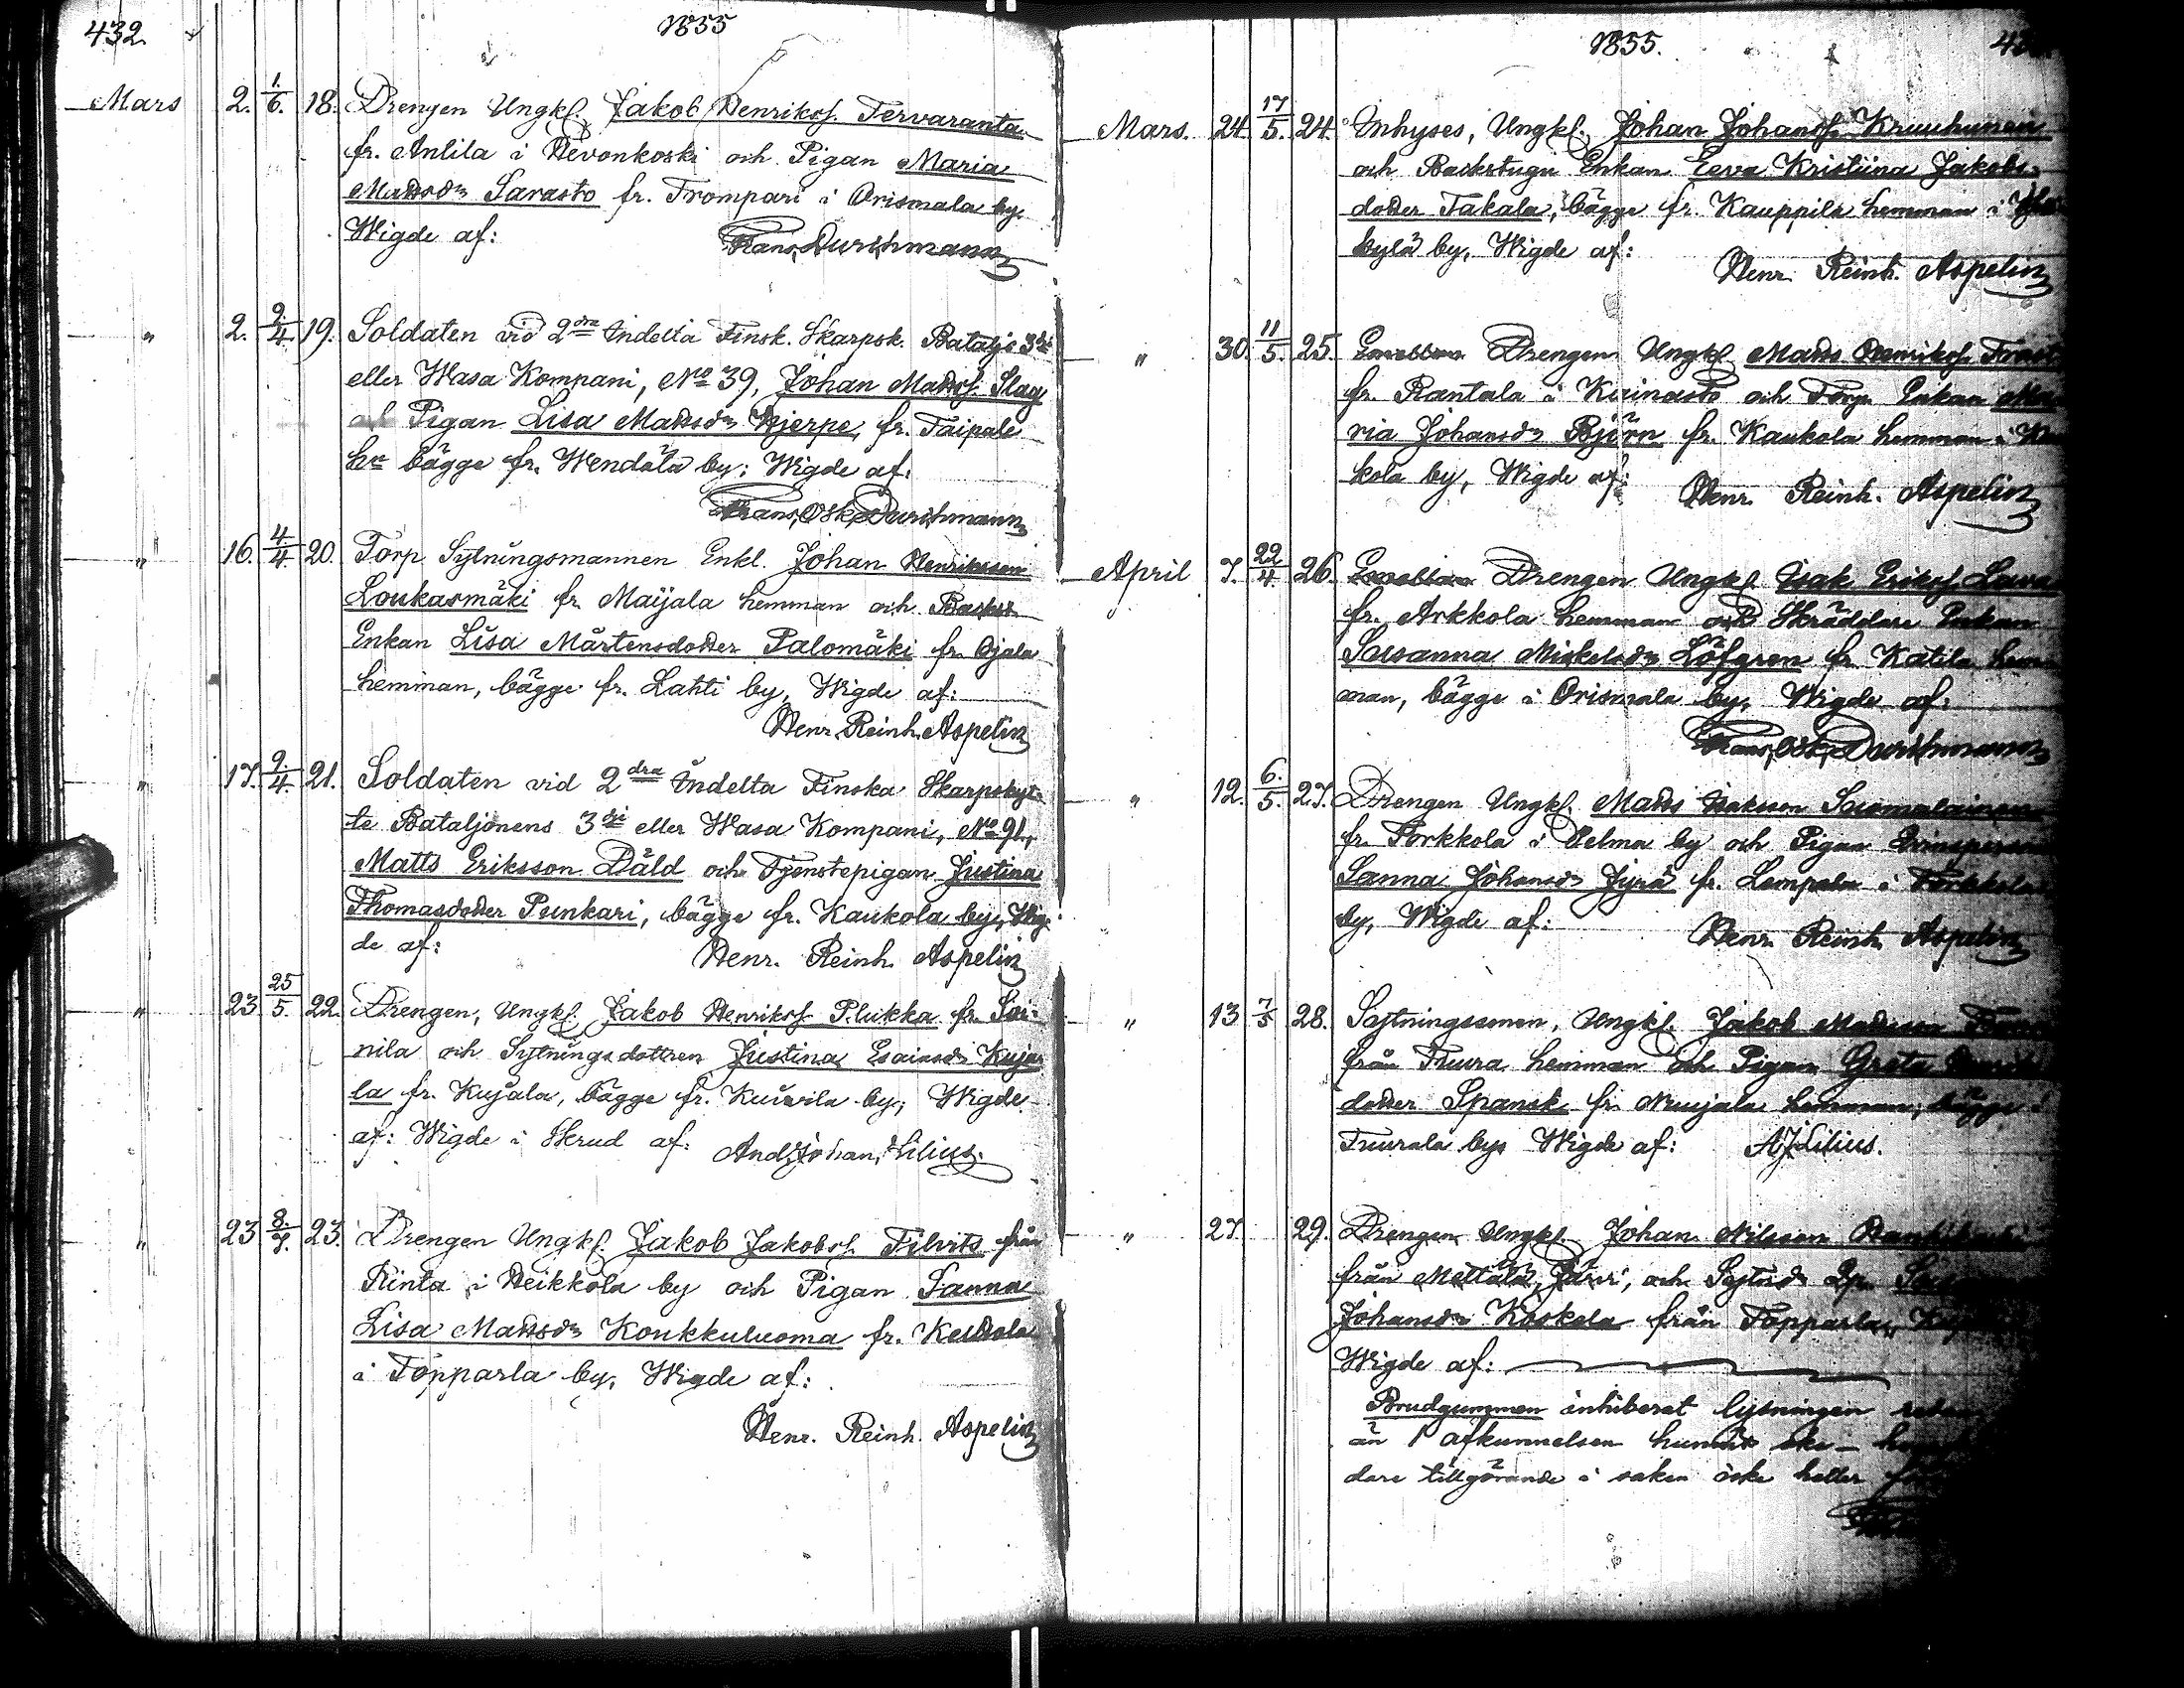 432
1855
Mars 2. 1./6. 18. Drengen Ungkl. Jakob Henrikss. Tervaranta
fr. Anlila i Hevonkoski och Pigan Maria
Mattsdr Sarasto fr. Trompari i Orismala by.
Wigde af: Frans Durchmann
" 2. 9./4. 19. Soldaten vid 2dra Indelta Finsk. Skarpsk. Bataljs 3dje
eller Wasa Kompani, No 39, Johan Mattss. Slag
och Pigan Lisa Mattsdr Kjerpe, fr. Taipale
hn bägge fr. Wendälä by; Wigde af:
Frans Osk. Durchmann
" 16. 4./4. 20. Torp Sytningsmannen Enkl. Johan Henriksson
Loukasmäki fr. Maijala hemman och Backst.
Enkan Lisa Mårtensdotter Palomäki fr. Ojala
hemman, bägge fr. Lahti by, Wigde af:
Henr. Reinh. Aspelin
" 17. 9./4. 21. Soldaten vid 2dra Indelta Finska Skarpskyt-
te Bataljonens 3dje eller Wasa Kompani, No 91,
Matts Eriksson Båld och Tjenstepigan Justina
Thomasdotter Punkari, bägge fr. Kaukola by, Wig-
de af: Henr. Reinh. Aspelin
" 23 25/5. 22. Drengen, Ungkl. Jakob Henrikss. Plukka fr. Soi-
nila och Sytningsdottren Justina Esaiasdr Kuja-
la fr. Kujala, bägge fr. Kuivila by; Wigde
af: Wigde i Skrud af: And. Johan Lilius.
" 23 8./7. 23. Drengen Ungkl. Jakob Jakobss. Filvits från
Rinta i Heikkola by och Pigan Sanna
Lisa Mattsdr Koukkuluoma fr. Keskola
i Topparla by, Wigde af:
Henr. Reinh. Aspelin
1855.
Mars. 24. 17/5. 24. Inhyses, Ungkl. Johan Johanss. Kruuhunen
och Backstugu Enkan Eeva Kristiina Jakobs-
dotter Takala, bägge fr. Kauppila hemman i
kylä by, Wigde af:
Henr. Reinh. Aspelin
" 30. 11/5. 25. Drengen Ungkl. Matts Henrikss.
fr. Rantala i Kainasto och Torp. Enkan Ma-
ria Johansdr Björn fr. Kaukola hemman i Kau-
kola by, Wigde af: Henr. Reinh. Aspelin
April 7. 22/4 26. Drengen Ungkl. Isak Erikss.
fr. Arkkola hemman och Skräddare Enkan
Susanna Mickelsdr Löfgren fr. Katila hem-
man, bägge i Orismala by, Wigde af:
Frans Osk. Durchmann
" 12. 6./5. 27. Drengen Ungkl. Matts Isaksson Suomalainen
fr. Porkkola i Velma by och Pigan
Sanna Johansdr Jyrä fr. Lempala i
by, Wigde af: Henr. Reinh. Aspelin
" 13 7/5 28. Sytningsman, Ungkl. Jakob Mattsson
från Tuura hemman och Pigan Greta
dotter Spansk fr. Nuujala hemman, bägge i
Tuurala by. Wigde af: AJ Lilius.
" 27. 29. Drengen Ungkl. Johan Nilsson
från Mettälä, Jurvi, och Sytnsdr Qp.
Johansdr Koskela från Topparla,
Wigde af:
Brudgummen inhiberat lysningen
än 1 afkunnelsen hunnit ske –
dare tillgörande i saken icke heller